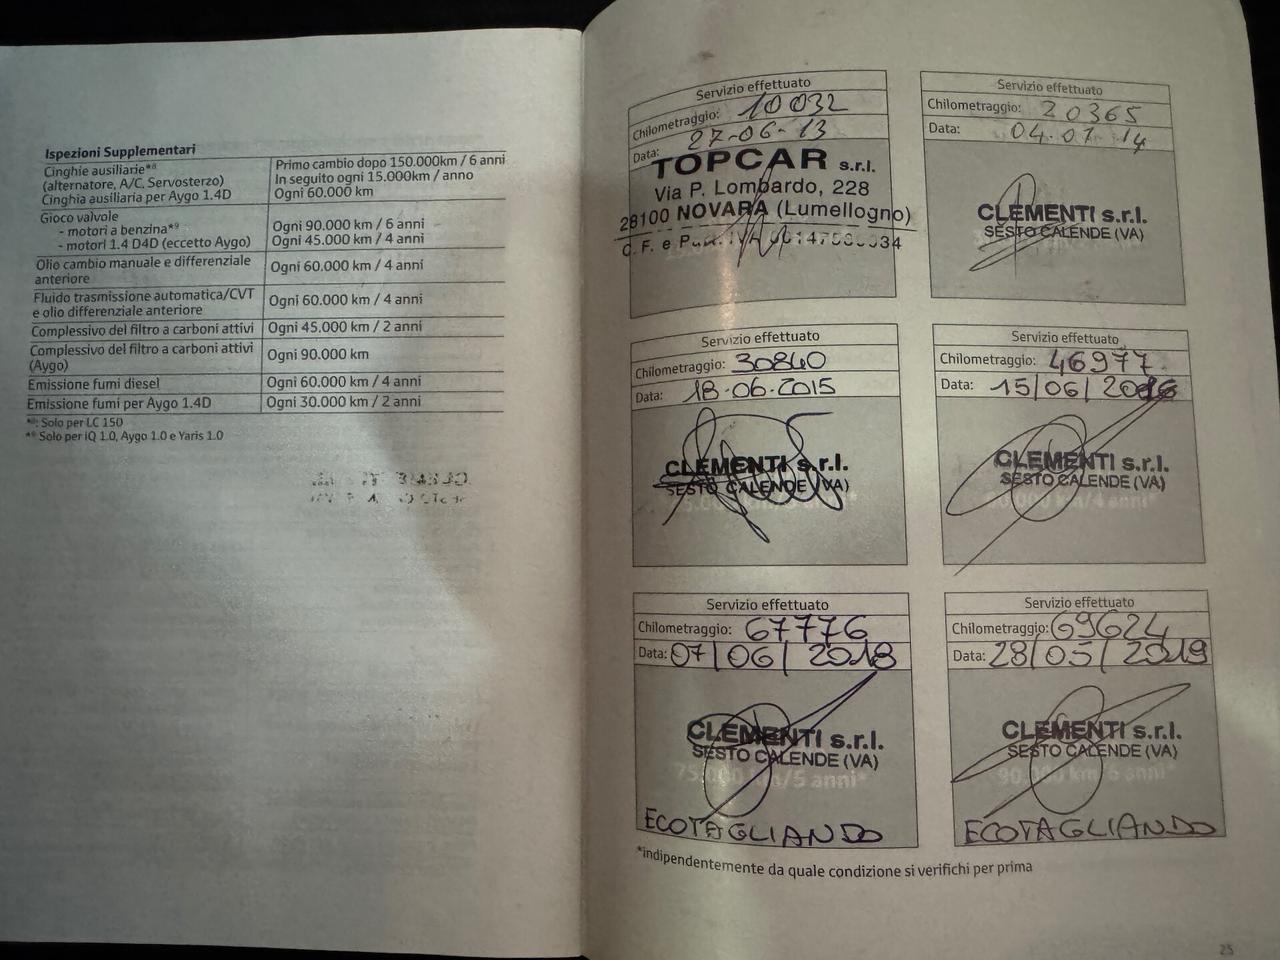 Ispezioni Supplementari
Cinghie ausiliarie*⁸
(alternatore, A/C, Servosterzo)
Cinghia ausiliaria per Aygo 1.4D
Primo cambio dopo 150.000km / 6 anni
In seguito ogni 15.000km / anno
Ogni 60.000 km
Gioco valvole
- motori a benzina*⁹
- motori 1.4 D4D (eccetto Aygo)
Ogni 90.000 km / 6 anni
Ogni 45.000 km / 4 anni
Olio cambio manuale e differenziale
anteriore
Ogni 60.000 km / 4 anni
Fluido trasmissione automatica/CVT
e olio differenziale anteriore
Ogni 60.000 km / 4 anni
Complessivo del filtro a carboni attivi
Ogni 45.000 km / 2 anni
Complessivo del filtro a carboni attivi
(Aygo)
Ogni 90.000 km
Emissione fumi diesel
Ogni 60.000 km / 4 anni
Emissione fumi per Aygo 1.4D
Ogni 30.000 km / 2 anni
: Solo per LC 150
Solo per iQ 1.0, Aygo 1.0 e Yaris 1.0
Servizio effettuato
Chilometraggio: 10032
Data: 27-06-13
TOPCAR s.r.l.
Via P. Lombardo, 228
28100 NOVARA (Lumellogno)
C. F. e P. IVA
Servizio effettuato
Chilometraggio: 20365
Data: 04.07.14
CLEMENTI s.r.l.
SESTO CALENDE (VA)
Servizio effettuato
Chilometraggio: 30840
Data: 18-06-2015
CLEMENTI s.r.l.
SESTO CALENDE (VA)
Servizio effettuato
Chilometraggio: 46977
Data: 15/06/2016
CLEMENTI s.r.l.
SESTO CALENDE (VA)
Servizio effettuato
Chilometraggio: 67776
Data: 07/06/2018
CLEMENTI s.r.l.
SESTO CALENDE (VA)
75.000 km/5 anni*
ECOTAGLIANDO
Servizio effettuato
Chilometraggio: 69624
Data: 28/05/2019
CLEMENTI s.r.l.
SESTO CALENDE (VA)
90.000 km/6 anni*
ECOTAGLIANDO
*indipendentemente da quale condizione si verifichi per prima
25